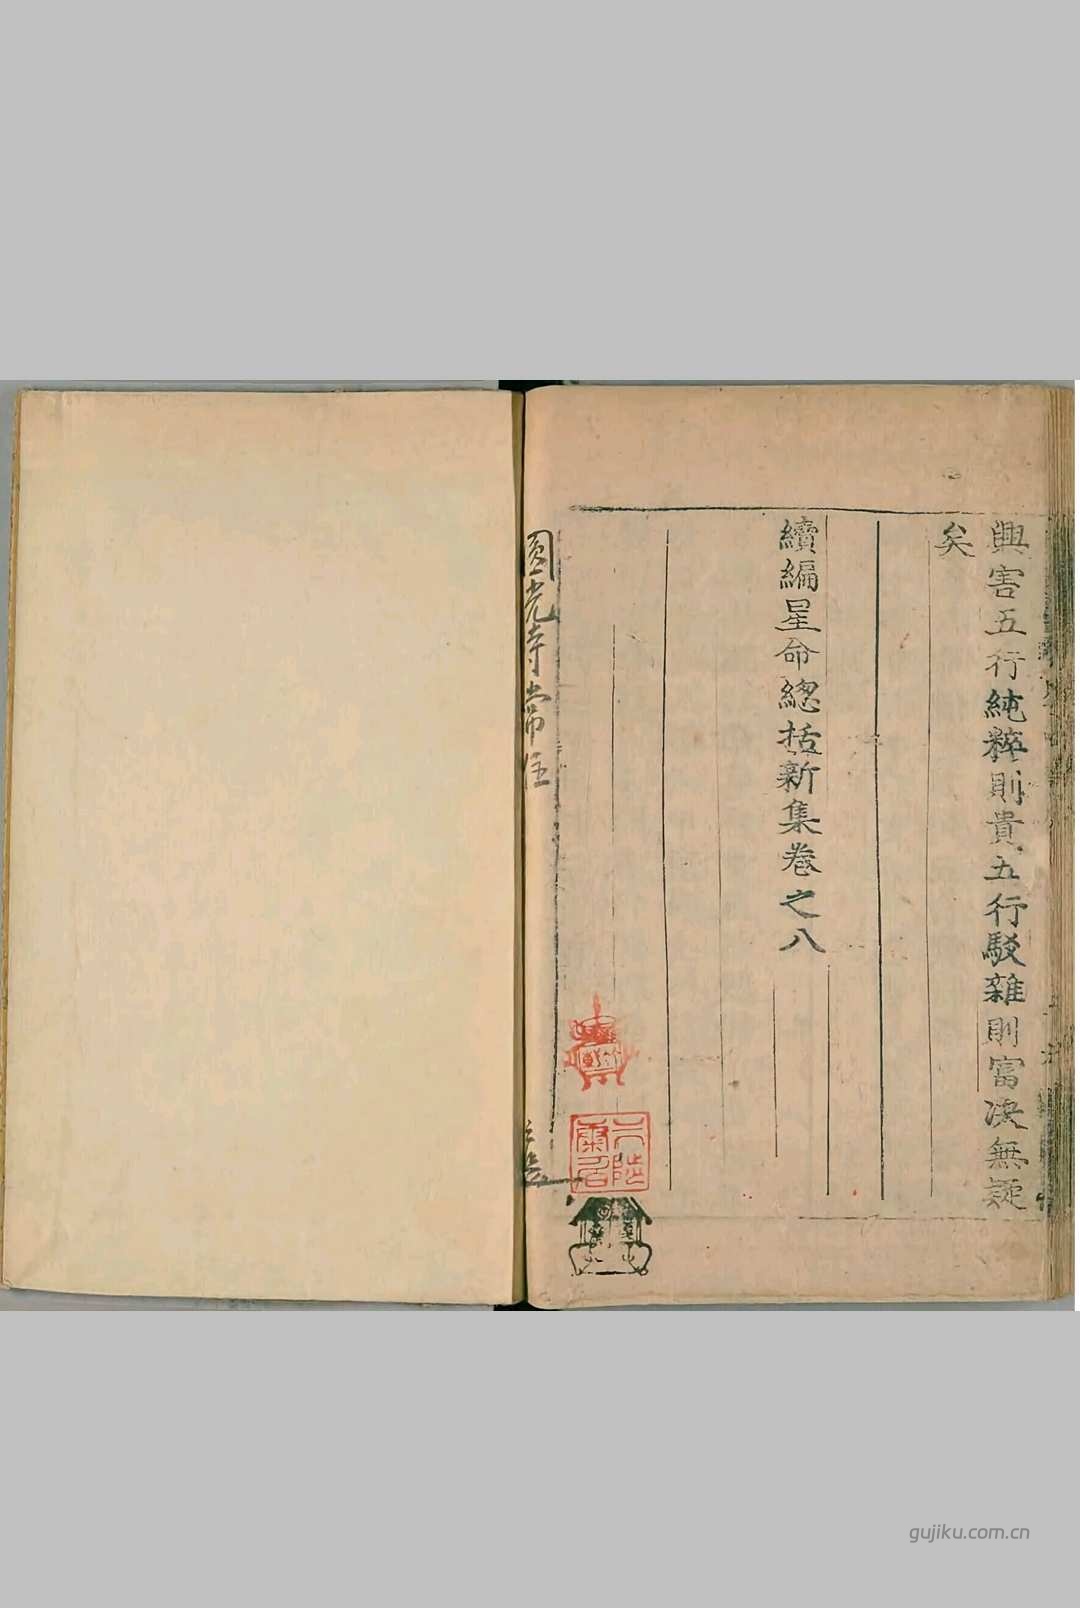 興害五行純粹則貴五行駁雜則富决無疑
矣
續編星命總括新集卷之八
圓光寺常住
gujiku.com.cn